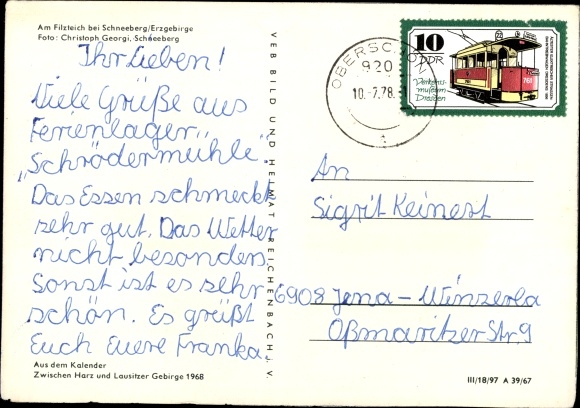 Am Filzteich bei Schneeberg/Erzgebirge
Foto: Christoph Georgi, Schneeberg
Ihr Lieben!
Viele Grüße aus
Ferienlager
„Schrödermühle".
Das Essen schmeckt
sehr gut. Das Wetter
nicht besonders.
Sonst ist es sehr
schön. Es grüßt
Euch Euere Franka.
Aus dem Kalender
Zwischen Harz und Lausitzer Gebirge 1968
VEB BILD UND HEIMAT REICHENBACH I. V.
920
10.-7.78.-
10
DDR
Verkehrs-
museum
Dresden
An
Sigrit Keinert
6908 Jena - Winzerla
Oßmaritzer Str 9
III/18/97 A 39/67